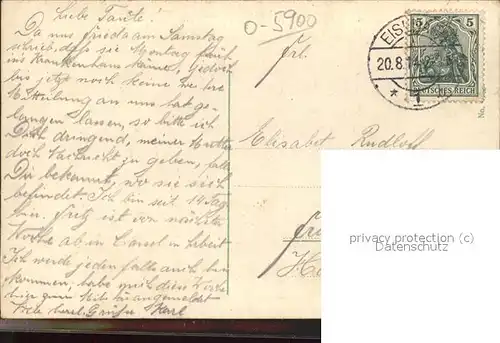 Liebe Tante!
Da uns Frieda am Samstag
schrieb, dass sie Montag früh
ins Krankenhaus käme, jedoch
bis jetzt noch keine weitere
Mitteilung an uns hat ge-
langen lassen, so bitte ich
Dich dringend, meiner Mutter
doch Nachricht zu geben, falls
Dir bekannt, wo sie sich
befindet. Ich bin seit 14 Tag.
hier. Fritz ist von nächster
Woche ab in Cassel in Arbeit
Ich werde jedenfalls auch bin
kommen, habe mich diese Woche
Viele herzl. Grüße Karl
O-5900
Frl.
Elisabet Rudloff
5 5
DEUTSCHES REICH
EIS
20.8.14
No.
privacy protection (c)
Datenschutz